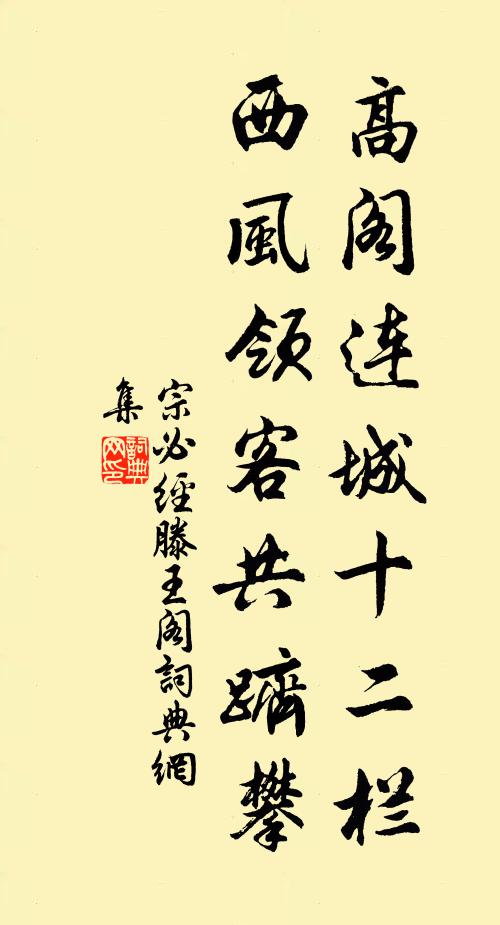 高阁连城十二栏
西風领客共躋攀
宗必經滕王阁詞典網
集
詞典网印